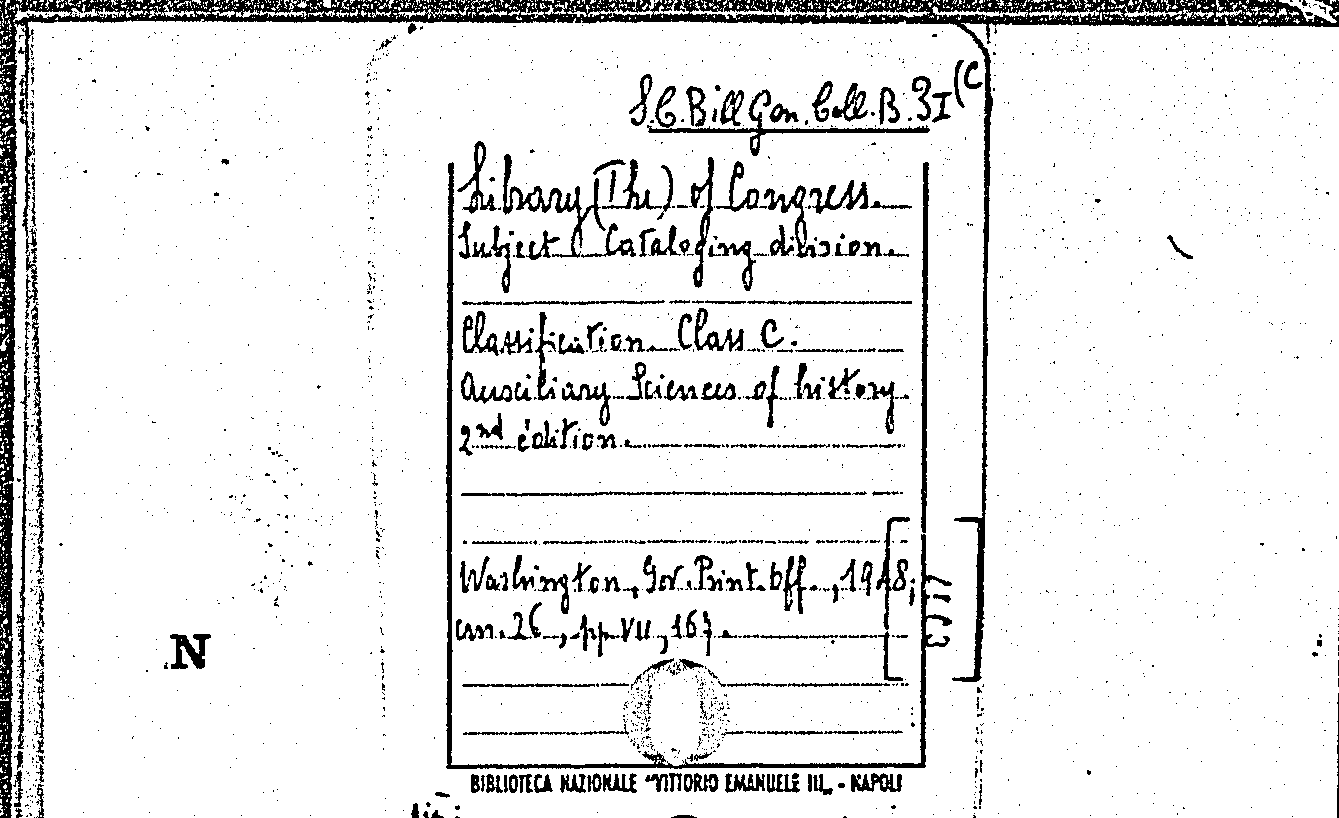 S.C. Bill Gen. Coll. B. 3I (C
Library (The) of Congress.
Subject Cataloging division.
Classification. Class C.
Auxciliary Sciences of history.
2nd édition.
Washington, Gov. Print. Off., 1948;
cm. 26, pp. VII, 167.
N
BIBLIOTECA NAZIONALE "VITTORIO EMANUELE III„ - NAPOLI